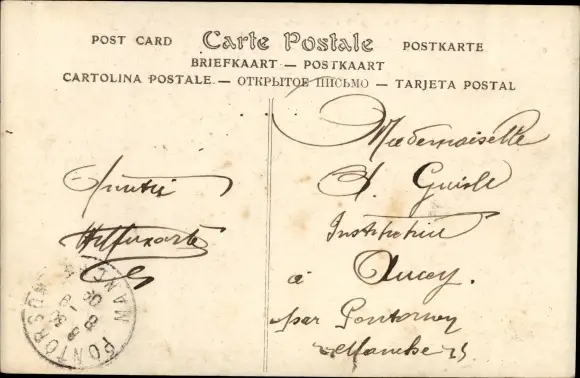 POST CARD Carte Postale POSTKARTE
BRIEFKAART — POSTKAART
CARTOLINA POSTALE — ОТКРЫТОЕ ПИСЬМО — TARJETA POSTAL
Mademoiselle
Institutrice
à Aucey
par Pontorson
Manche
PONTORSON MANCHE